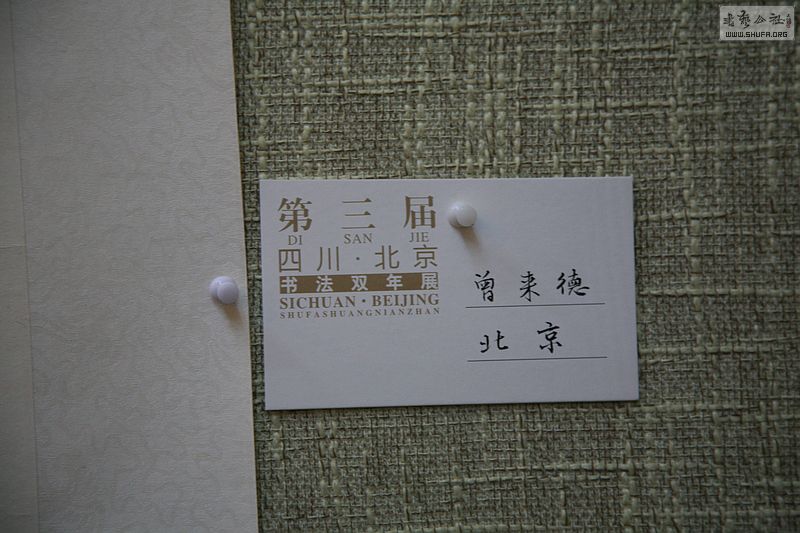 第三届
DI SAN JIE
四川·北京
书法双年展
SICHUAN·BEIJING
SHUFASHUANGNIANZHAN
曾来德
北京
WWW.SHUFA.ORG